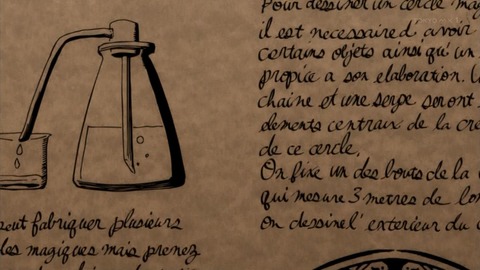 Pour dessiner un cercle mag
il est necessaire d'avoir
certains objets ainsi qu'un
propice a son elaboration. U
chaine et une serpe seront
elements centraux de la cre
de ce cercle.
On fixe un des bouts de la
qui mesure 3 metres de lon
on dessine l'exterieur du c
peut fabriquer plusieurs
les magiques mais prenez